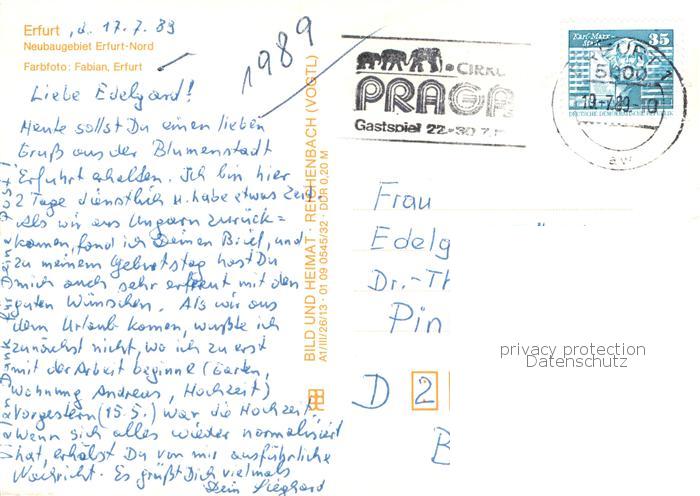 Erfurt, d. 17.7.89
Neubaugebiet Erfurt-Nord
Farbfoto: Fabian, Erfurt
1989
Liebe Edelgard!
Heute sollst Du einen lieben
Gruß aus der Blumenstadt
Erfuhrt erhalten. Ich bin hier
2 Tage dienstlich u. habe etwas Zeit.
Als wir aus Ungarn zurück=
kamen, fand ich Deinen Brief, und
zu meinem Geburtstag hast Du
mich auch sehr erfreut mit den
guten Wünschen. Als wir aus
dem Urlaub kamen, wußte ich
zunächst nicht, wo ich zu erst
mit der Arbeit beginne (Garten,
Wohnung Andreas, Hochzeit)
Vorgestern (15.5.) war die Hochzeit.
Wenn sich alles wieder normalisiert
hat, erhälst Du von mir ausführliche
Nachricht. Es grüßt Dich vielmals
Dein Sieghard
BILD UND HEIMAT · REICHENBACH (VOGTL)
A1/III/26/13 · 01 09 0545/32 · DDR 0,20 M
CIRKU
PRAGA
Gastspiel 22.-30.7.
Karl-Marx-
Stadt
35
DEUTSCHE DEMOKRATISCHE
ERFURT 1
5000
19.-7.89.-
aw
Frau
Edelg
Dr.-Th
Pin
D 2
privacy protection
Datenschutz